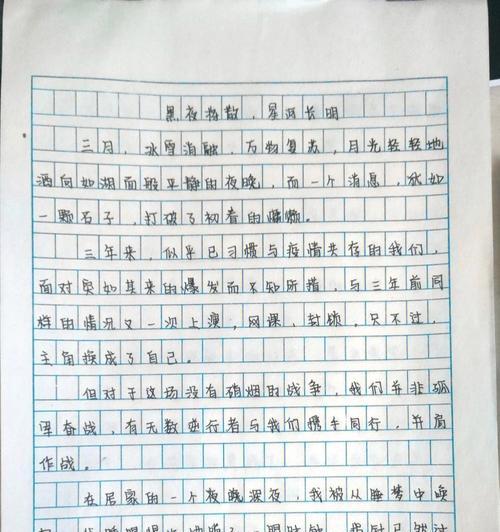 黑夜将散，星河长明
三月，冰雪消融，万物复苏，月光轻轻地
洒向如湖面般平静的夜晚，而一个消息，犹如
一颗石子，打破了初春的慵懒。
三年来，似乎已习惯与疫情共存的我们，
面对突如其来的爆发而不知所措，与三年前同
样的情况又一次上演，网课，封锁，只不过，
主角换成了自己。
但对于这场没有硝烟的战争，我们并非孤
军奋战，有无数逆行者与我们携手同行，并肩
作战。
在居家的一个夜晚深夜，我被从睡梦中唤